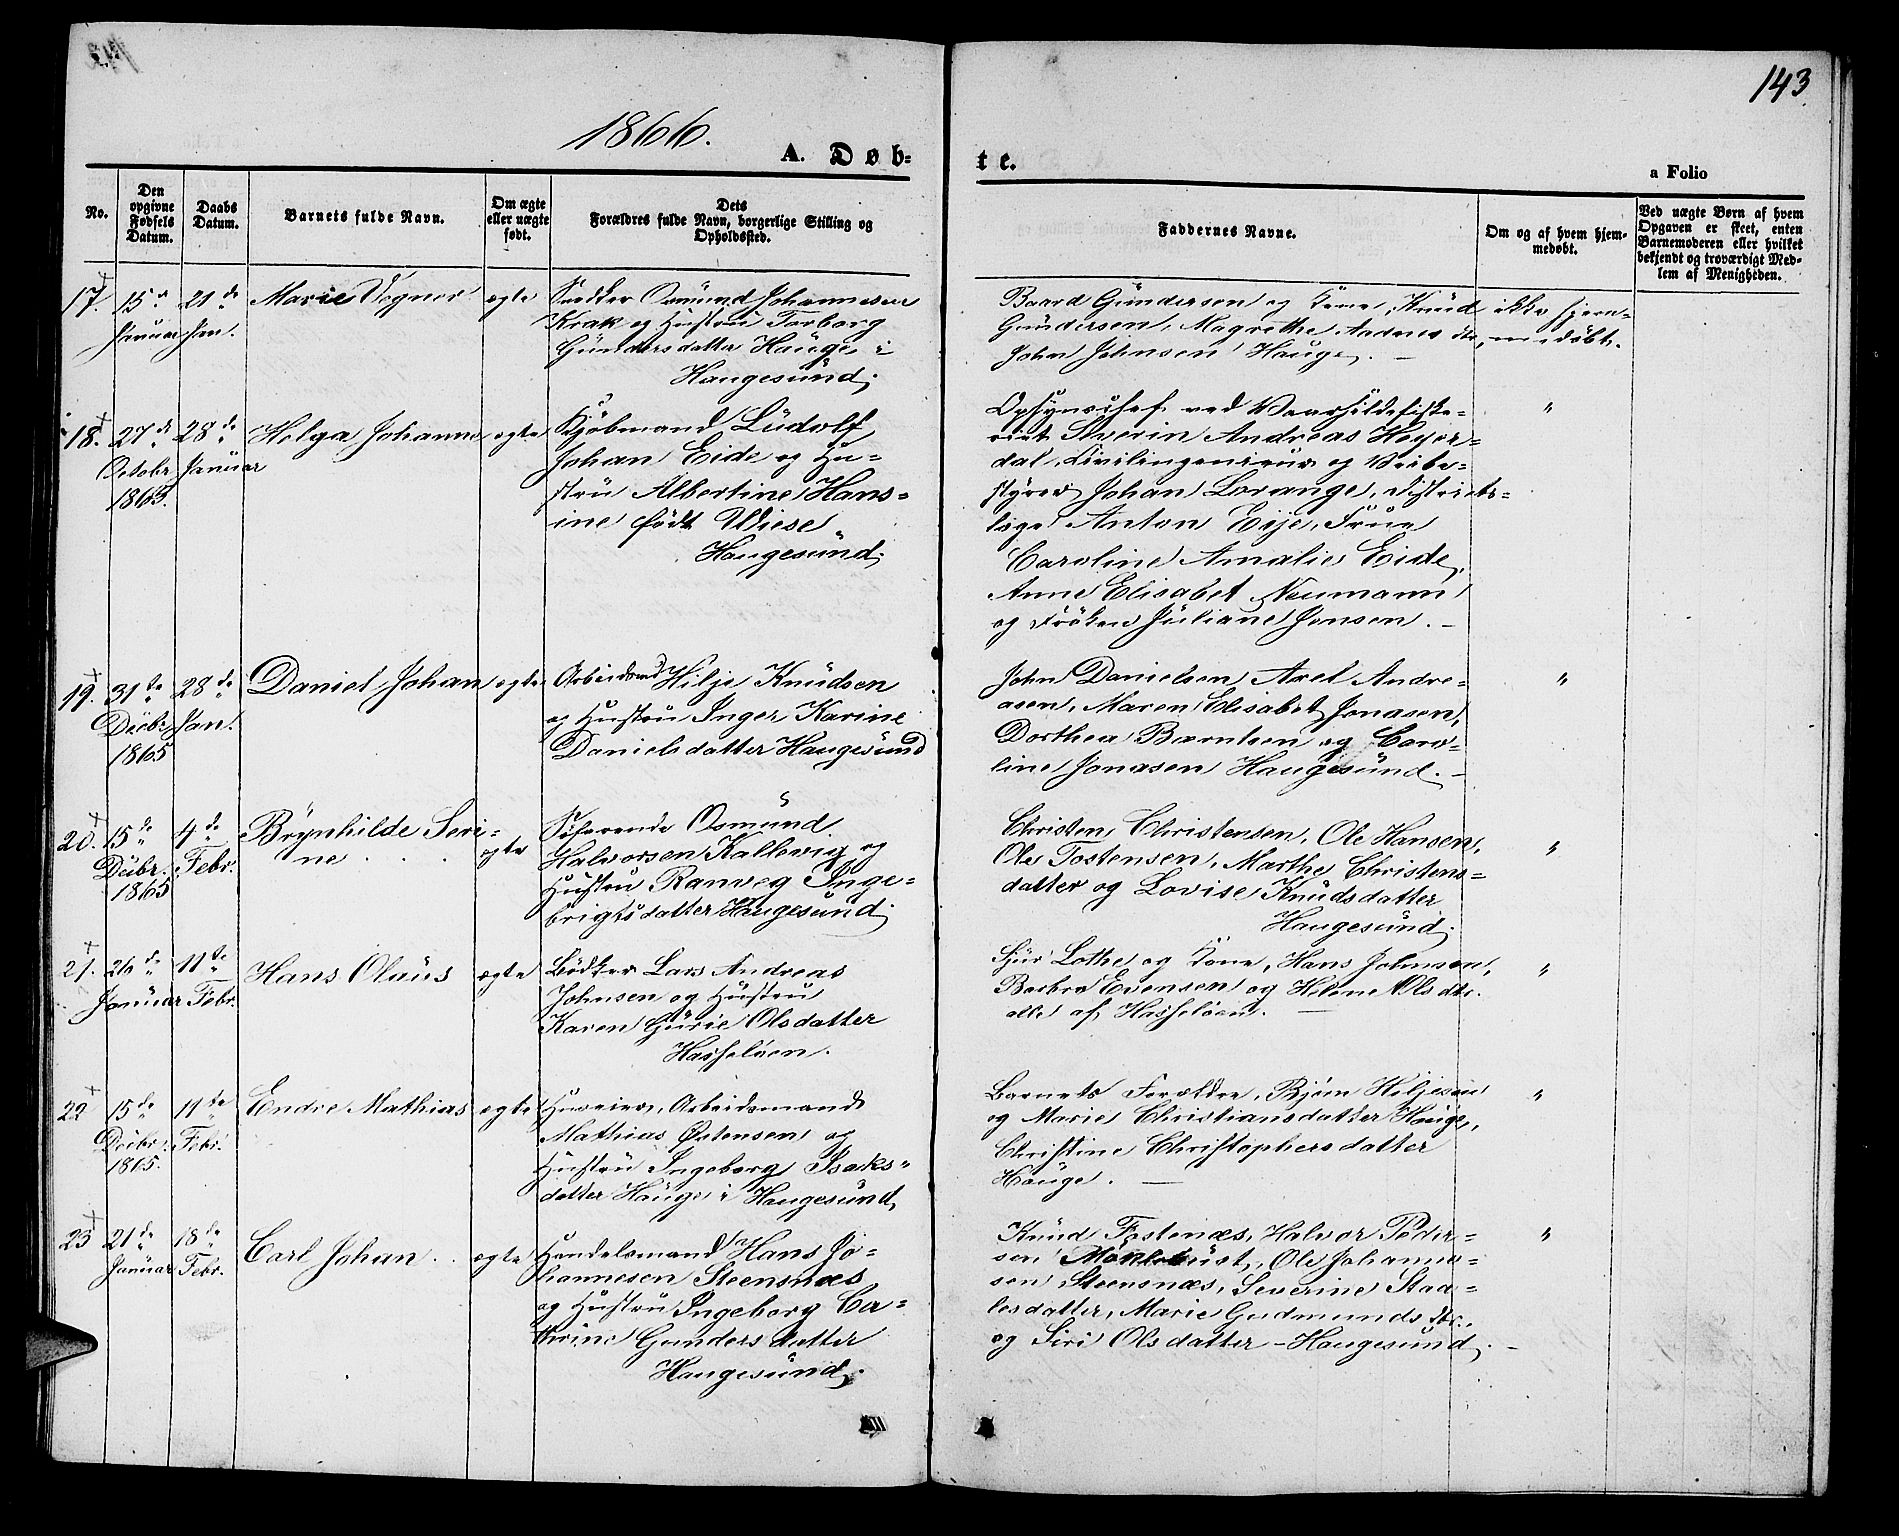 143
1866.
A. Døb-
te.
a Folio
No.
Den
opgivne
Fødsels
Datum.
Daabs
Datum.
Barnets fulde Navn.
Om ægte
eller uægte
født.
Dets
Forældres fulde Navn, borgerlige Stilling og
Opholdssted.
Faddernes Navne.
Om og af hvem hjem-
medøbt.
Ved uægte Børn af hvem
Opgaven er skeet, enten
Barnemoderen eller hvilket
bekjendt og troværdigt Med-
lem af Menigheden.
17.
15de
Januar
21de
Jan.
Marie Vegner
ægte
Snedker Osmund Johannesen
Krak og Hustru Torborg
Gundersdatter Hauge i
Haugesund.
Baard Gundersen og Kone, Knud
Gundersen, Magrethe Aadnes dtr,
John Johnsen Hauge. —
ikke hjem-
medøbt.
18.
27de
Octobr
1865.
28de
Januar
Helga Johanne
ægte
Kjøbmand Ludolf
Johan Eide og Hu-
stru Albertine Hans-
ine født Wiese
Haugesund.
Opsynschef ved Vaarsildefiske-
riet Severin Andreas Heyer-
dal, Civilingenieur og
styrer Johan Lorange, Districts-
læge Anton Eije, Frue
Caroline Amalie Eide,
Anne Elisabet Neumann
og Frøken Juliane Jensen. —
"
19.
31te
Decbr
1865
28de
Jan.
Daniel Johan
ægte
Arbeidsmd Hilje Knudsen
og Hustru Inger Karine
Danielsdatter Haugesund
John Danielsen, Axel Andre-
asen, Maren Elisabet Jonasen,
Dorthea Bærntsen og Caro-
line Jonasen Haugesund. —
"
20.
15de
Decbr.
1865
4de
Febr.
Brynhilde Seri-
ne . . .
ægte
Søfarende Osmund
Halvorsen Kallevig og
Hustru Ranveg Inge-
brigtsdatter Haugesund.
Christen Christensen, Ole Hansen,
Ole Tostensen, Marthe Christens-
datter og Lovise Knudsdatter
Haugesund.
"
21.
26de
Januar
11te
Febr.
Hans Olaus
ægte
Bødker Lars Andreas
Johnsen og Hustru
Karen Gurie Olsdatter
Hasseløen.
Sjur Lothe og Kone, Hans Johnsen,
Barbra Evensen og Helene Ols dtr.
alle af Hasseløen. —
"
22
15de
Decbr.
1865.
11te
Febr.
Endre Mathias
ægte
Huseier, Arbeidsmand
Mathias Østensen og
Hustru Ingeborg Isaks-
datter Hauge i Haugesund,
Barnets Forældre, Bjørn Hiljesen
og Marie Christiansdatter Hauge,
Christine Christophersdatter
Hauge. —
"
23
21de
Januar
18de
Febr.
Carl Johan . .
ægte
Handelsmand Hans Jo-
hannesen Steensnæs
og Hustru Ingeborg Ca-
thrine Gundersdatter
Haugesund.
Knud Fostenæs, Halvor Peder-
sen Mønlebust, Ole Johanne-
sen Steensnæs, Severine Staa-
lesdatter, Marie Gudmunds dtr.,
og Siri Olsdatter – Haugesund. —
"